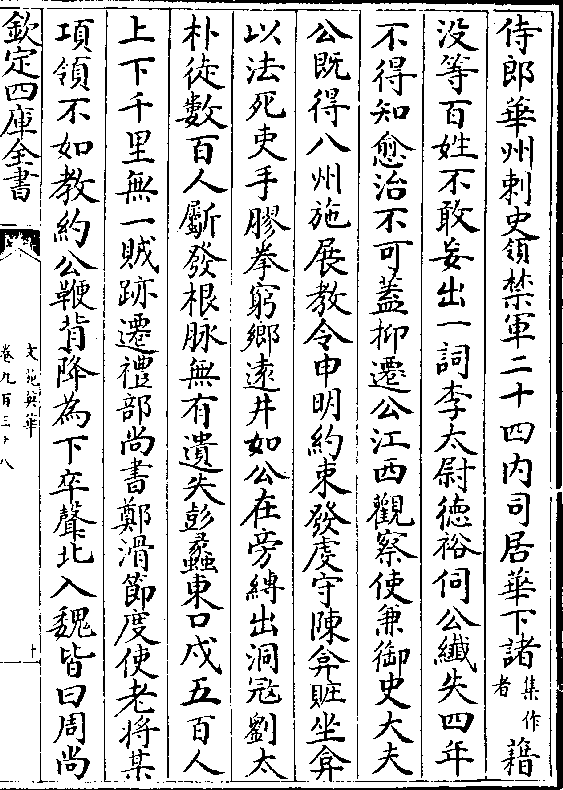 侍郎華州刺史領禁軍二十四内司居華下諸集作者藉
没等百姓不敢妄出一詞李太尉徳裕伺公纖失四年
不得知愈治不可蓋抑遷公江西觀察使兼御史大夫
公既得八州施展教令申明約束發虔守陳弇贓坐弇
以法死吏手膠拳窮鄉逺井如公在旁縳出洞冦劉太
朴徒數百人斸發根脉無有遺失彭蠡東口戍五百人
上下千里無一賊跡遷禮部尚書鄭滑節度使老將某
項領不如教約公鞭背降為下卒聲北入魏皆曰周尚
欽定四庫全書
文苑英華
卷九百三十八
十